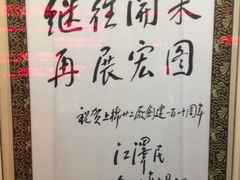 继往开来
再展宏图
祝贺上棉廿二厂创建一百一十周年
江泽民